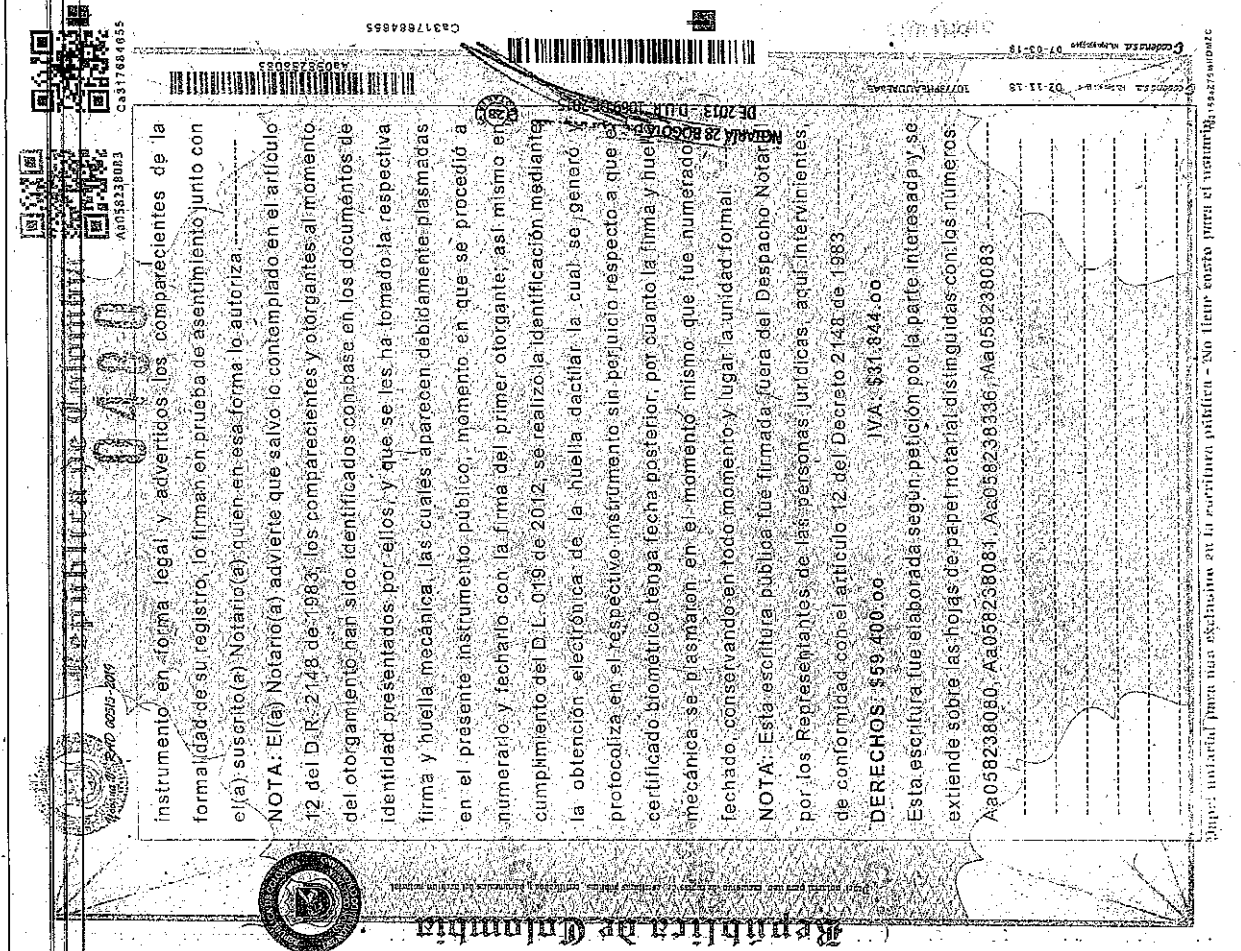 República de Colombia
0480
Aa058238083
Ca317684655
instrumento en forma legal y advertidos los comparecientes de la
formalidad de su registro, lo firman en prueba de asentimiento junto con
el(a) suscrito(a) Notario(a) quien en esa forma lo autoriza.
NOTA: El(a) Notario(a) advierte que salvo lo contemplado en el artículo
12 del D.R. 2148 de 1983, los comparecientes y otorgantes al momento
del otorgamiento han sido identificados con base en los documentos de
identidad presentados por ellos, y que se les ha tomado la respectiva
firma y huella mecánica, las cuales aparecen debidamente plasmadas
en el presente instrumento público, momento en que se procedió a
numerarlo y fecharlo con la firma del primer otorgante; así mismo en
cumplimiento del D.L. 019 de 2012, se realizó la identificación mediante
la obtención electrónica de la huella dactilar la cual se generó y
protocoliza en el respectivo instrumento sin perjuicio respecto a que el
certificado biométrico tenga fecha posterior, por cuanto la firma y huella
mecánica se plasmaron en el momento mismo que fue numerado
fechado, conservando en todo momento y lugar la unidad formal.
NOTA: Esta escritura pública fue firmada fuera del Despacho Notarial
por los Representantes de las personas jurídicas aquí intervinientes,
de conformidad con el artículo 12 del Decreto 2148 de 1983
DERECHOS $59.400.oo IVA: $31.844.oo
Esta escritura fue elaborada según petición por la parte interesada y se
extiende sobre las hojas de papel notarial distinguidas con los números:
Aa058238080, Aa058238081, Aa058238336, Aa058238083
Papel notarial para uso exclusivo en la escritura pública - No tiene costo para el usuario
República de Colombia
Aa058238083
Ca317684655
NOTARIA 28 BOGOTA
DE 2013 - D.U.R.
02-11-18
07-03-19